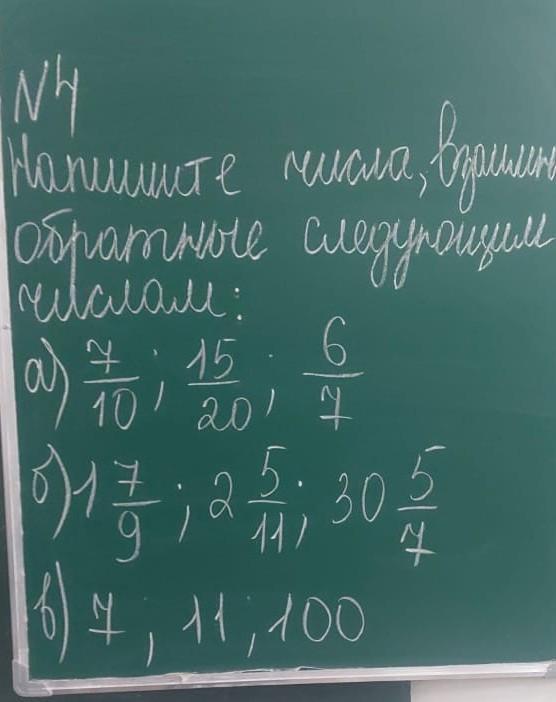 N4
Напишите числа, взаимно
обратные следующим
числам:
а) 7/10; 15/20; 6/7
б) 1 7/9; 2 5/11; 30 5/7
в) 7, 11, 100